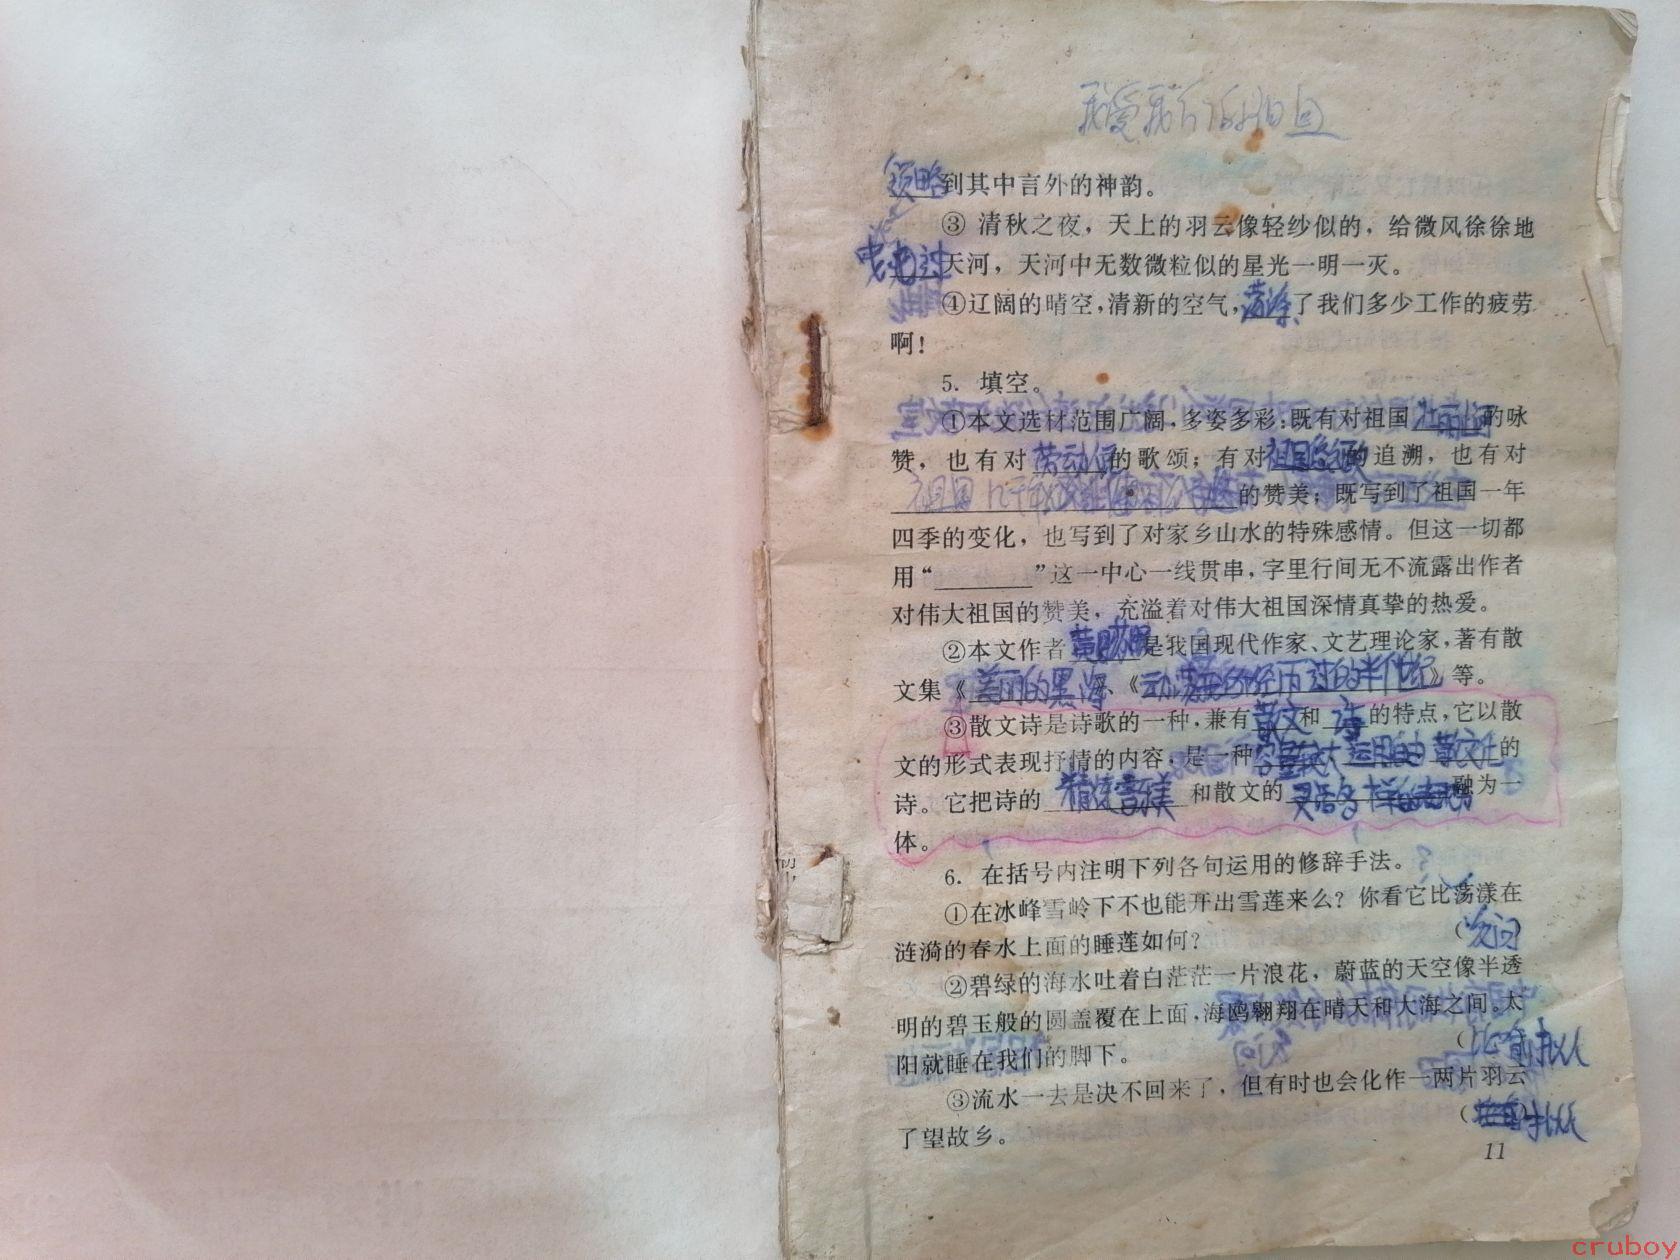 我爱我们的祖国
领略到其中言外的神韵。
③ 清秋之夜，天上的羽云像轻纱似的，给微风徐徐地
天河，天河中无数微粒似的星光一明一灭。
④辽阔的晴空，清新的空气，荡涤了我们多少工作的疲劳
啊！
5. 填空。
①本文选材范围广阔，多姿多彩：既有对祖国 的咏
赞，也有对劳动人民的歌颂；有对祖国 的追溯，也有对
祖国几千年 的赞美；既写到了祖国一年
四季的变化，也写到了对家乡山水的特殊感情。但这一切都
用“______”这一中心一线贯串，字里行间无不流露出作者
对伟大祖国的赞美，充溢着对伟大祖国深情真挚的热爱。
②本文作者黄药眠是我国现代作家、文艺理论家，著有散
文集《美丽的黑海》、《动荡：我所经历的半个世纪》等。
③散文诗是诗歌的一种，兼有散文和 诗 的特点，它以散
文的形式表现抒情的内容，是一种 容量较大 运用自由 散文化的
诗。它把诗的 精炼音乐美 和散文的 灵活多样 融为一
体。
6. 在括号内注明下列各句运用的修辞手法。
①在冰峰雪岭下不也能开出雪莲来么？你看它比荡漾在
涟漪的春水上面的睡莲如何？ （ 问
②碧绿的海水吐着白茫茫一片浪花，蔚蓝的天空像半透
明的碧玉般的圆盖覆在上面，海鸥翱翔在晴天和大海之间。太
阳就睡在我们的脚下。 （比喻拟人
③流水一去是决不回来了，但有时也会化作一两片羽云
了望故乡。 （ 拟人
11
cruboy